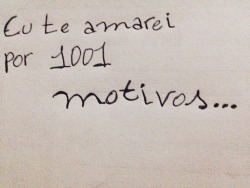 Eu te amarei
por 1001
motivos...